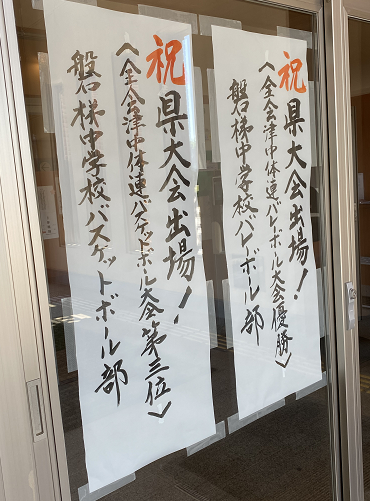 祝 県大会出場!
〈全会津中体連バレーボール大会優勝〉
磐梯中学校バレーボール部
祝 県大会出場!
〈全会津中体連バスケットボール大会第三位〉
磐梯中学校バスケットボール部